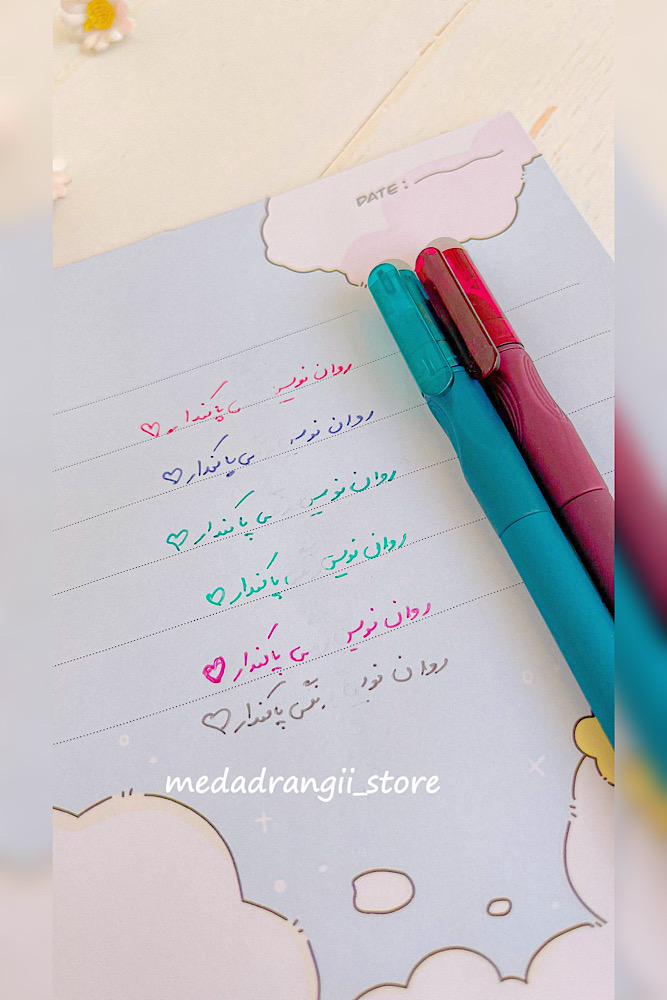 DATE:
روان نویس پاکندار
روان نویس پاکندار
روان نویس پاکندار
روان نویس پاکندار
روان نویس پاکندار
روان پاکندار
medadrangii_store